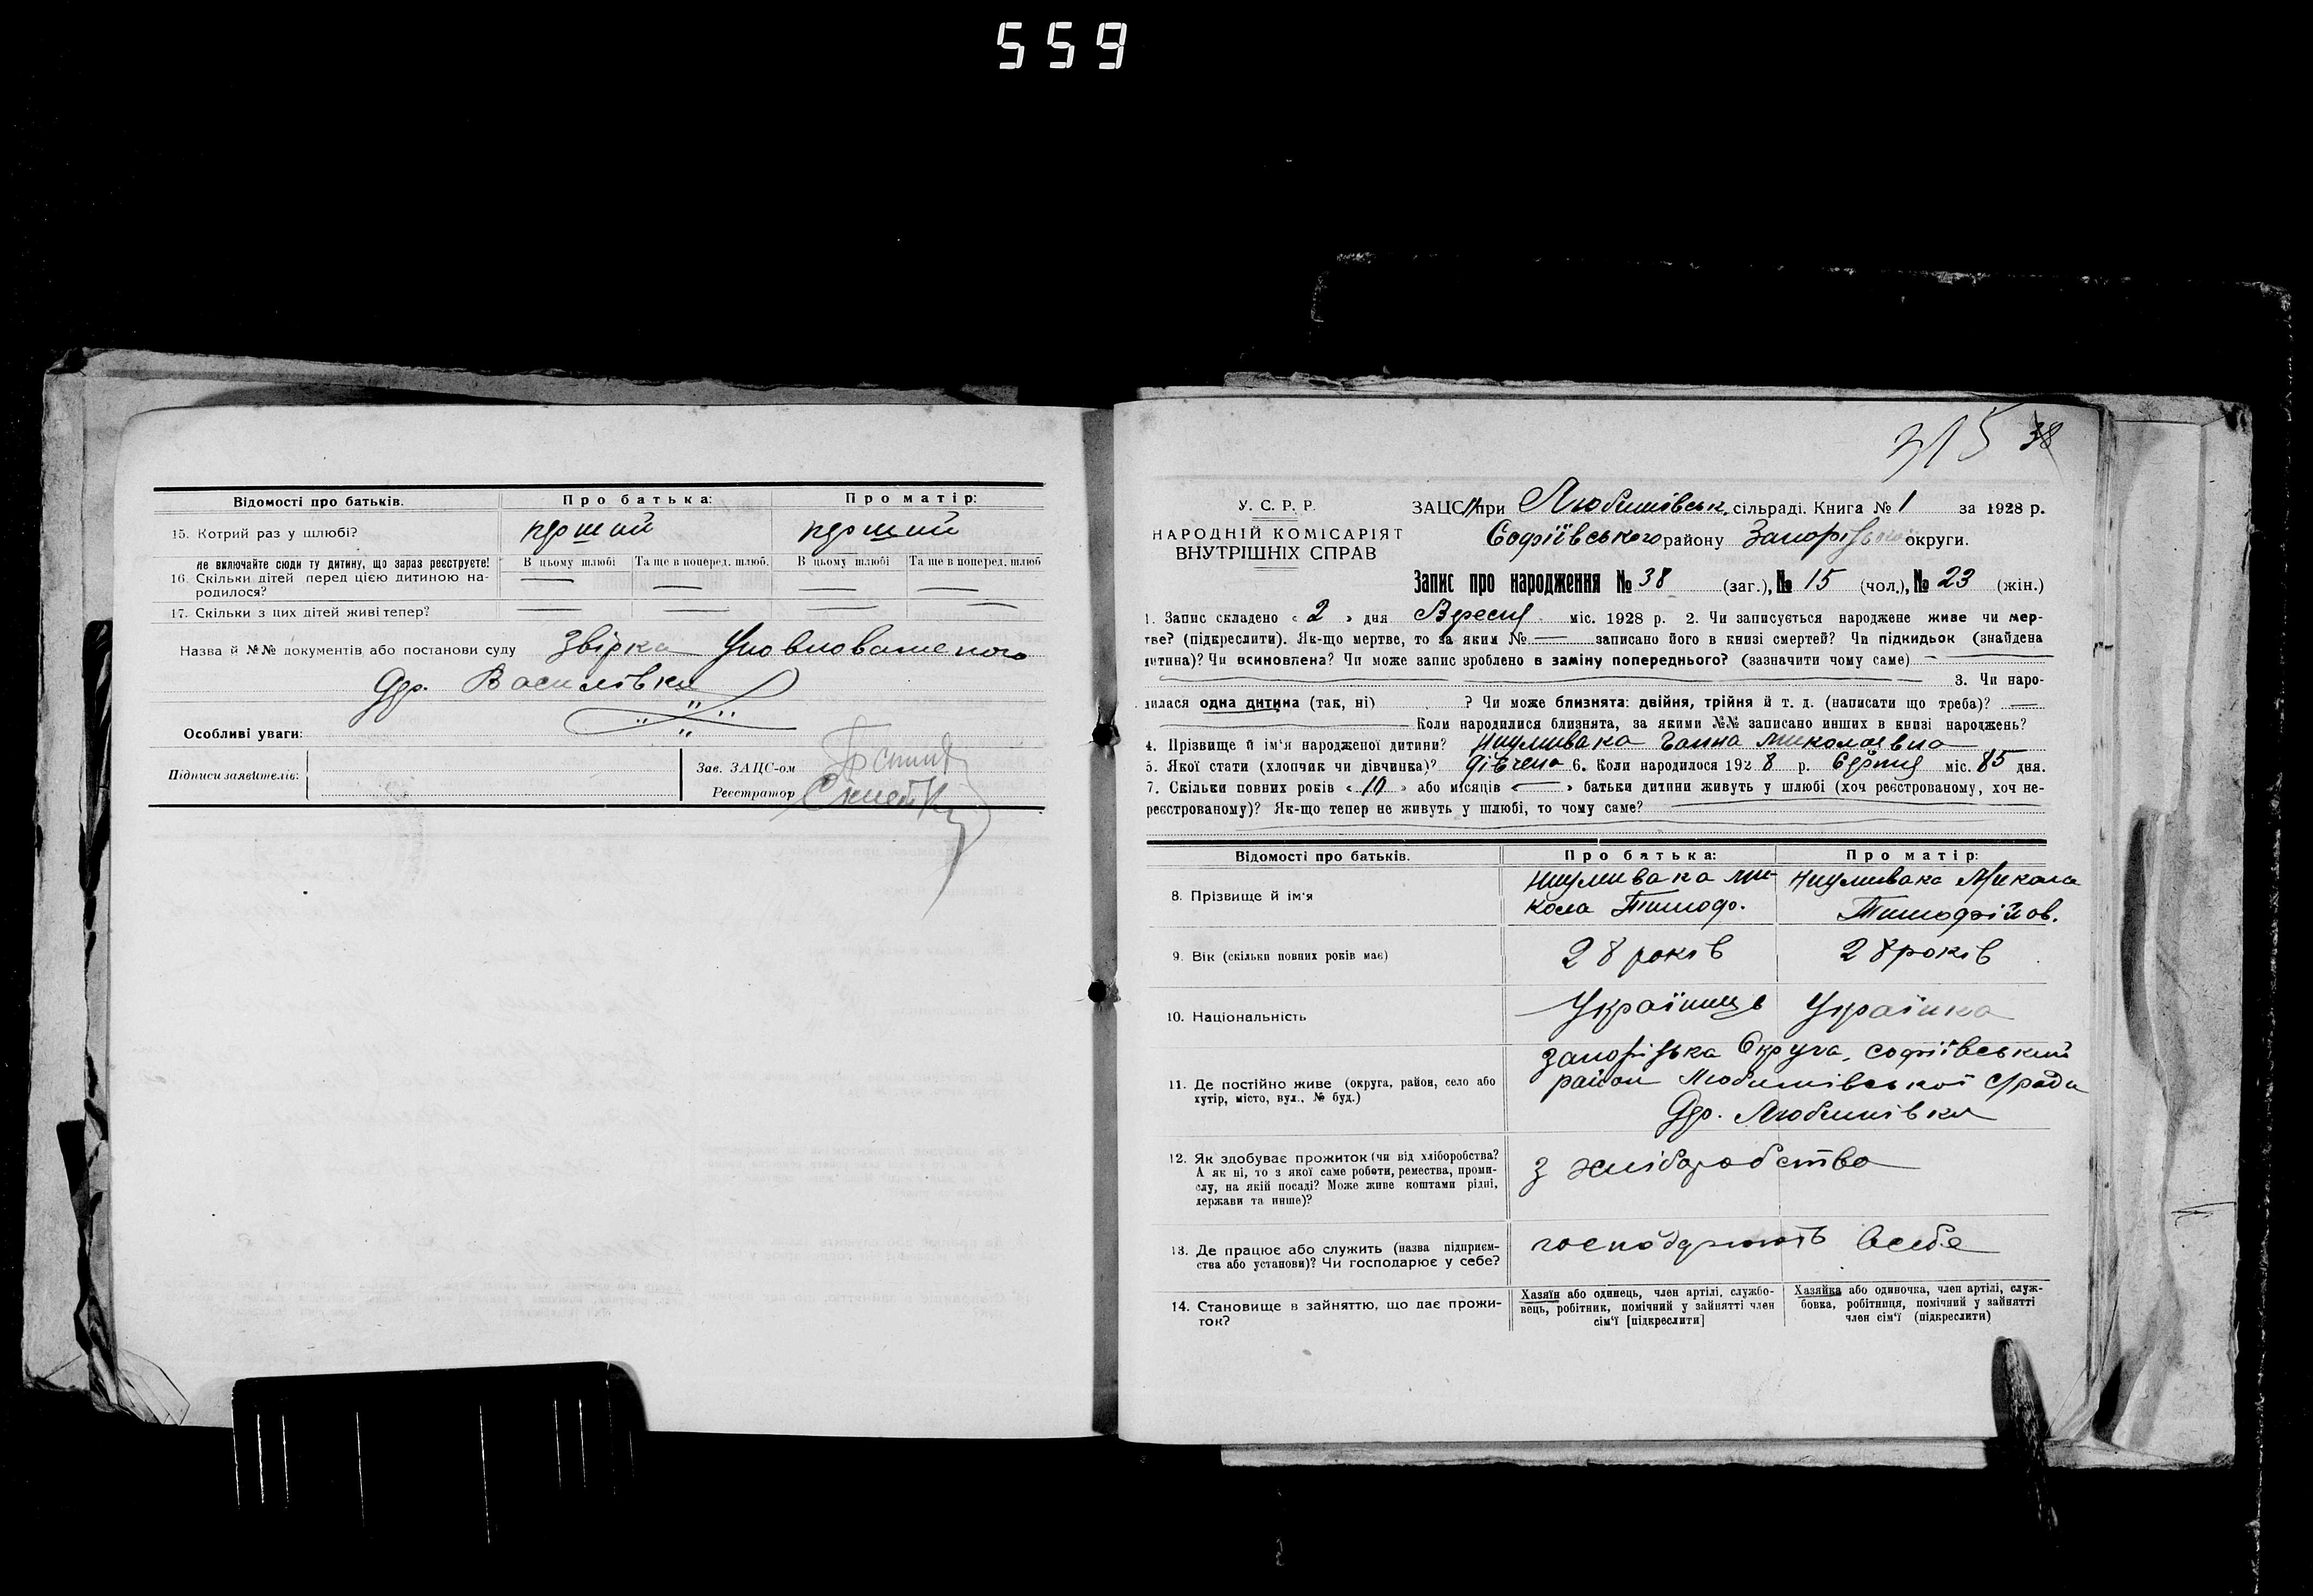 559
Відомості про батьків. Про батька: Про матір:
15. Котрий раз у шлюбі? перший перший
не включайте сюди ту дитину, що зараз реєструєте! В цьому шлюбі Та ще в поперед. шлюб. В цьому шлюбі Та ще в поперед. шлюб
16. Скільки дітей перед цією дитиною на-
родилося? — — — —
17. Скільки з цих дітей живі тепер? — — — —
Назва й №№ документів або постанови суду Звірка Уповноваженого
Дер. Василівки
Особливі уваги:
Підписи заявителів:
Зав. ЗАЦС-ом
Реєстратор
315 38
У. С. Р. Р.
НАРОДНІЙ КОМІСАРІЯТ
ВНУТРІШНІХ СПРАВ
ЗАЦС при Любимівськ. сільраді. Книга № 1 за 1928 р.
Софіївського району Запорізької округи.
Запис про народження № 38 (заг.), № 15 (чол.), № 23 (жін.)
1. Запис складено « 2 » дня Вересня міс. 1928 р. 2. Чи записується народжене живе чи мер-
тве? (підкреслити). Як-що мертве, то за яким № — записано його в книзі смертей? Чи підкидьок (знайдена
дитина)? Чи всиновлена? Чи може запис зроблено в заміну попереднього? (зазначити чому саме) —
3. Чи наро-
дилася одна дитина (так, ні) ? Чи може близнята: двійня, трійня й т. д. (написати що треба)? —
Коли народилися близнята, за якими №№ записано инших в книзі народжень?
4. Прізвище й ім'я народженої дитини? Ганна Миколаєвна
5. Якої стати (хлопчик чи дівчинка)? дівчена 6. Коли народилося 192 8 р. Серпня міс. дня.
7. Скільки повних років « 10 » або місяців « — » батьки дитини живуть у шлюбі (хоч реєстрованому, хоч не-
реєстрованому)? Як-що тепер не живуть у шлюбі, то чому саме?
Відомості про батьків. Про батька: Про матір:
8. Прізвище й ім'я Ми- Микола
кола Тимоф. Тимофійов.
9. Вік (скільки повних років має) 28 років 28 років
10. Національність Українець Українка
11. Де постійно живе (округа, район, село або
хутір, місто, вул., № буд.) Запорізька Округа, Софіївський
район Любимівської с/рада
Дер. Любимівка
12. Як здобуває прожиток (чи від хліборобства?
А як ні, то з якої саме роботи, ремества, проми-
слу, на якій посаді? Може живе коштами рідні,
держави та инше)? з хліборобства
13. Де працює або служить (назва підприєм-
ства або установи)? Чи господарює у себе? господарюють всебе
14. Становище в зайняттю, що дає прожи-
ток?
Хазяїн або одинець, член артілі, службо-
вець, робітник, помічний у зайнятті член
сім'ї [підкреслити]
Хазяйка або одиночка, член артілі, служ-
бовка, робітниця, помічний у зайнятті
член сім'ї (підкреслити)